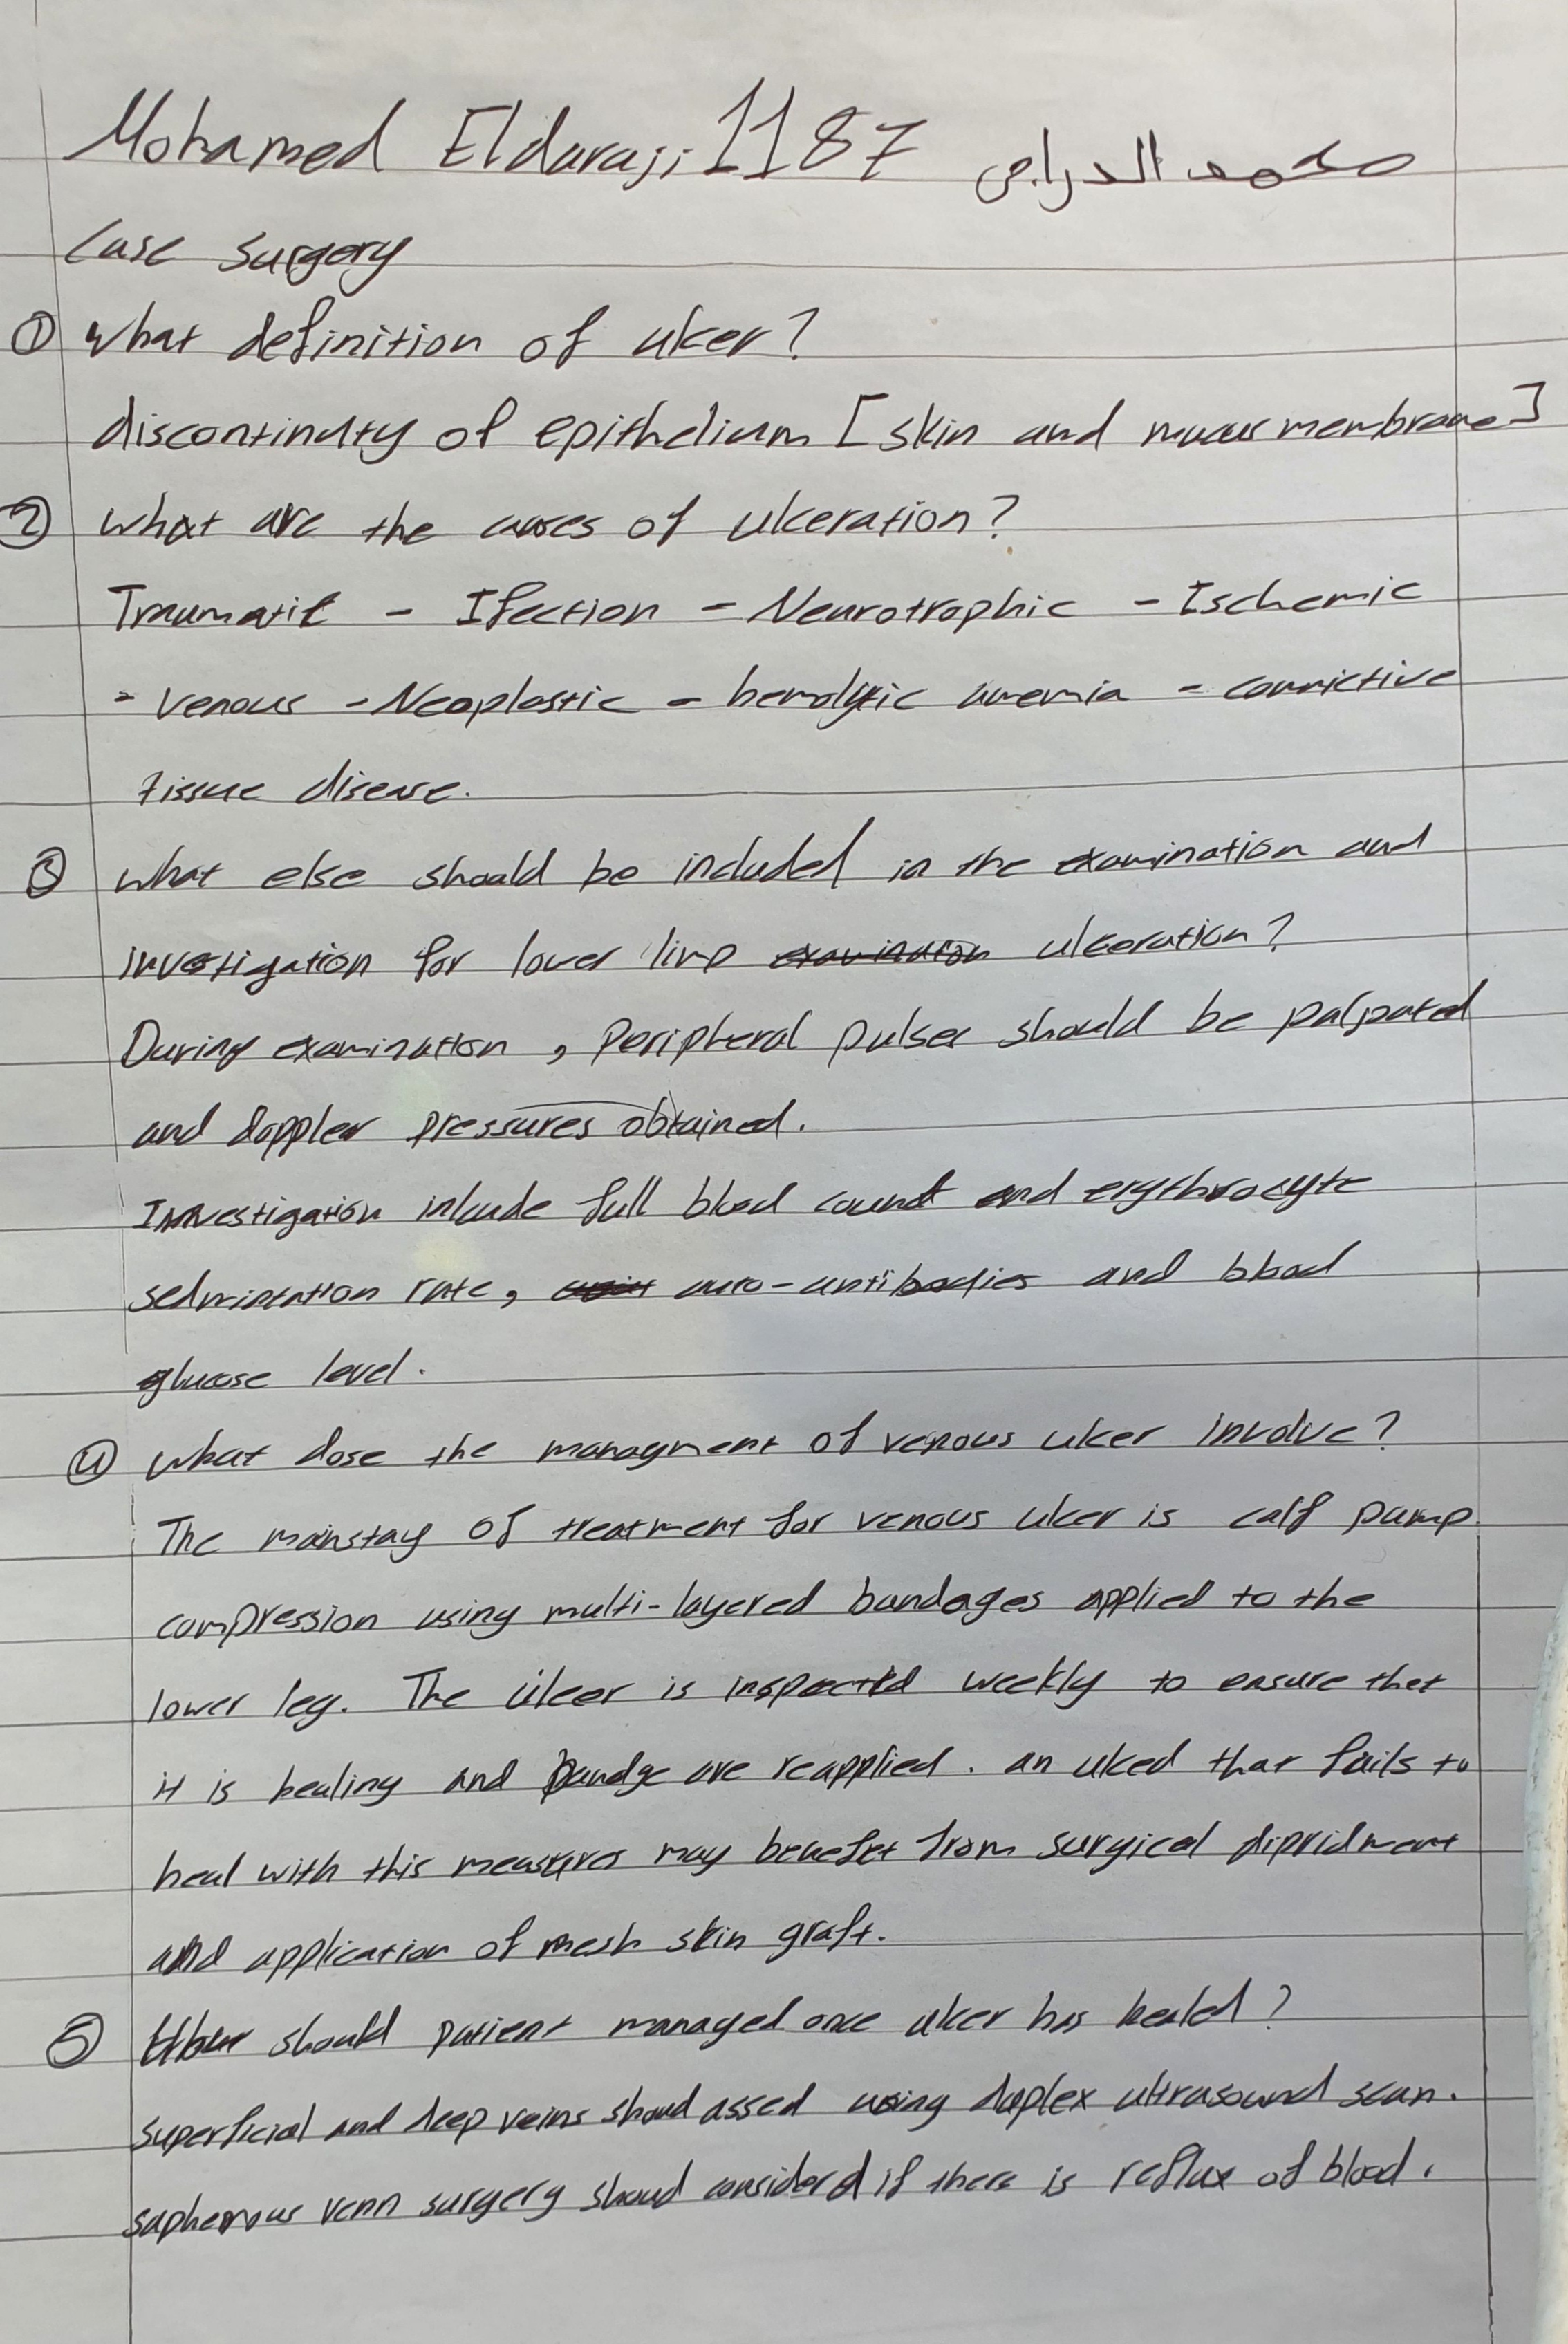 Mohamed Eldaraji 1187 محمد الدراجي
Case Surgery
① What definition of ulcer?
discontinuty of epithelium [skin and mucus membrane]
② what are the causes of ulceration?
Traumatic - Ifection - Neurotrophic - Ischemic
- Venous - Neoplastic - hemolytic anemia - connictive
tissue disease.
③ what else should be included in the examination and
investigation for lower limp examination ulceration?
During examination, peripheral pulses should be palpated
and doppler pressures obtained.
Investigation inlcude full blood count and erythrocyte
sedmintation rate, auto-antibodies and blood
glucose level.
④ what dose the managment of venous ulcer involve?
The mainstay of treatment for venous ulcer is calf pump
compression using multi-layered bandages applied to the
lower leg. The ulcer is inspected weekly to ensure that
it is healing and bandge are reapplied. an ulced that fails to
heal with this measures may benefet from surgical dipridment
and application of mesh skin graft.
⑤ How should patient managed once ulcer has healed?
superficial and deep veins shoud assed using duplex ultrasound scan.
saphenous venn surgery shoud considerd if there is reflux of blood.